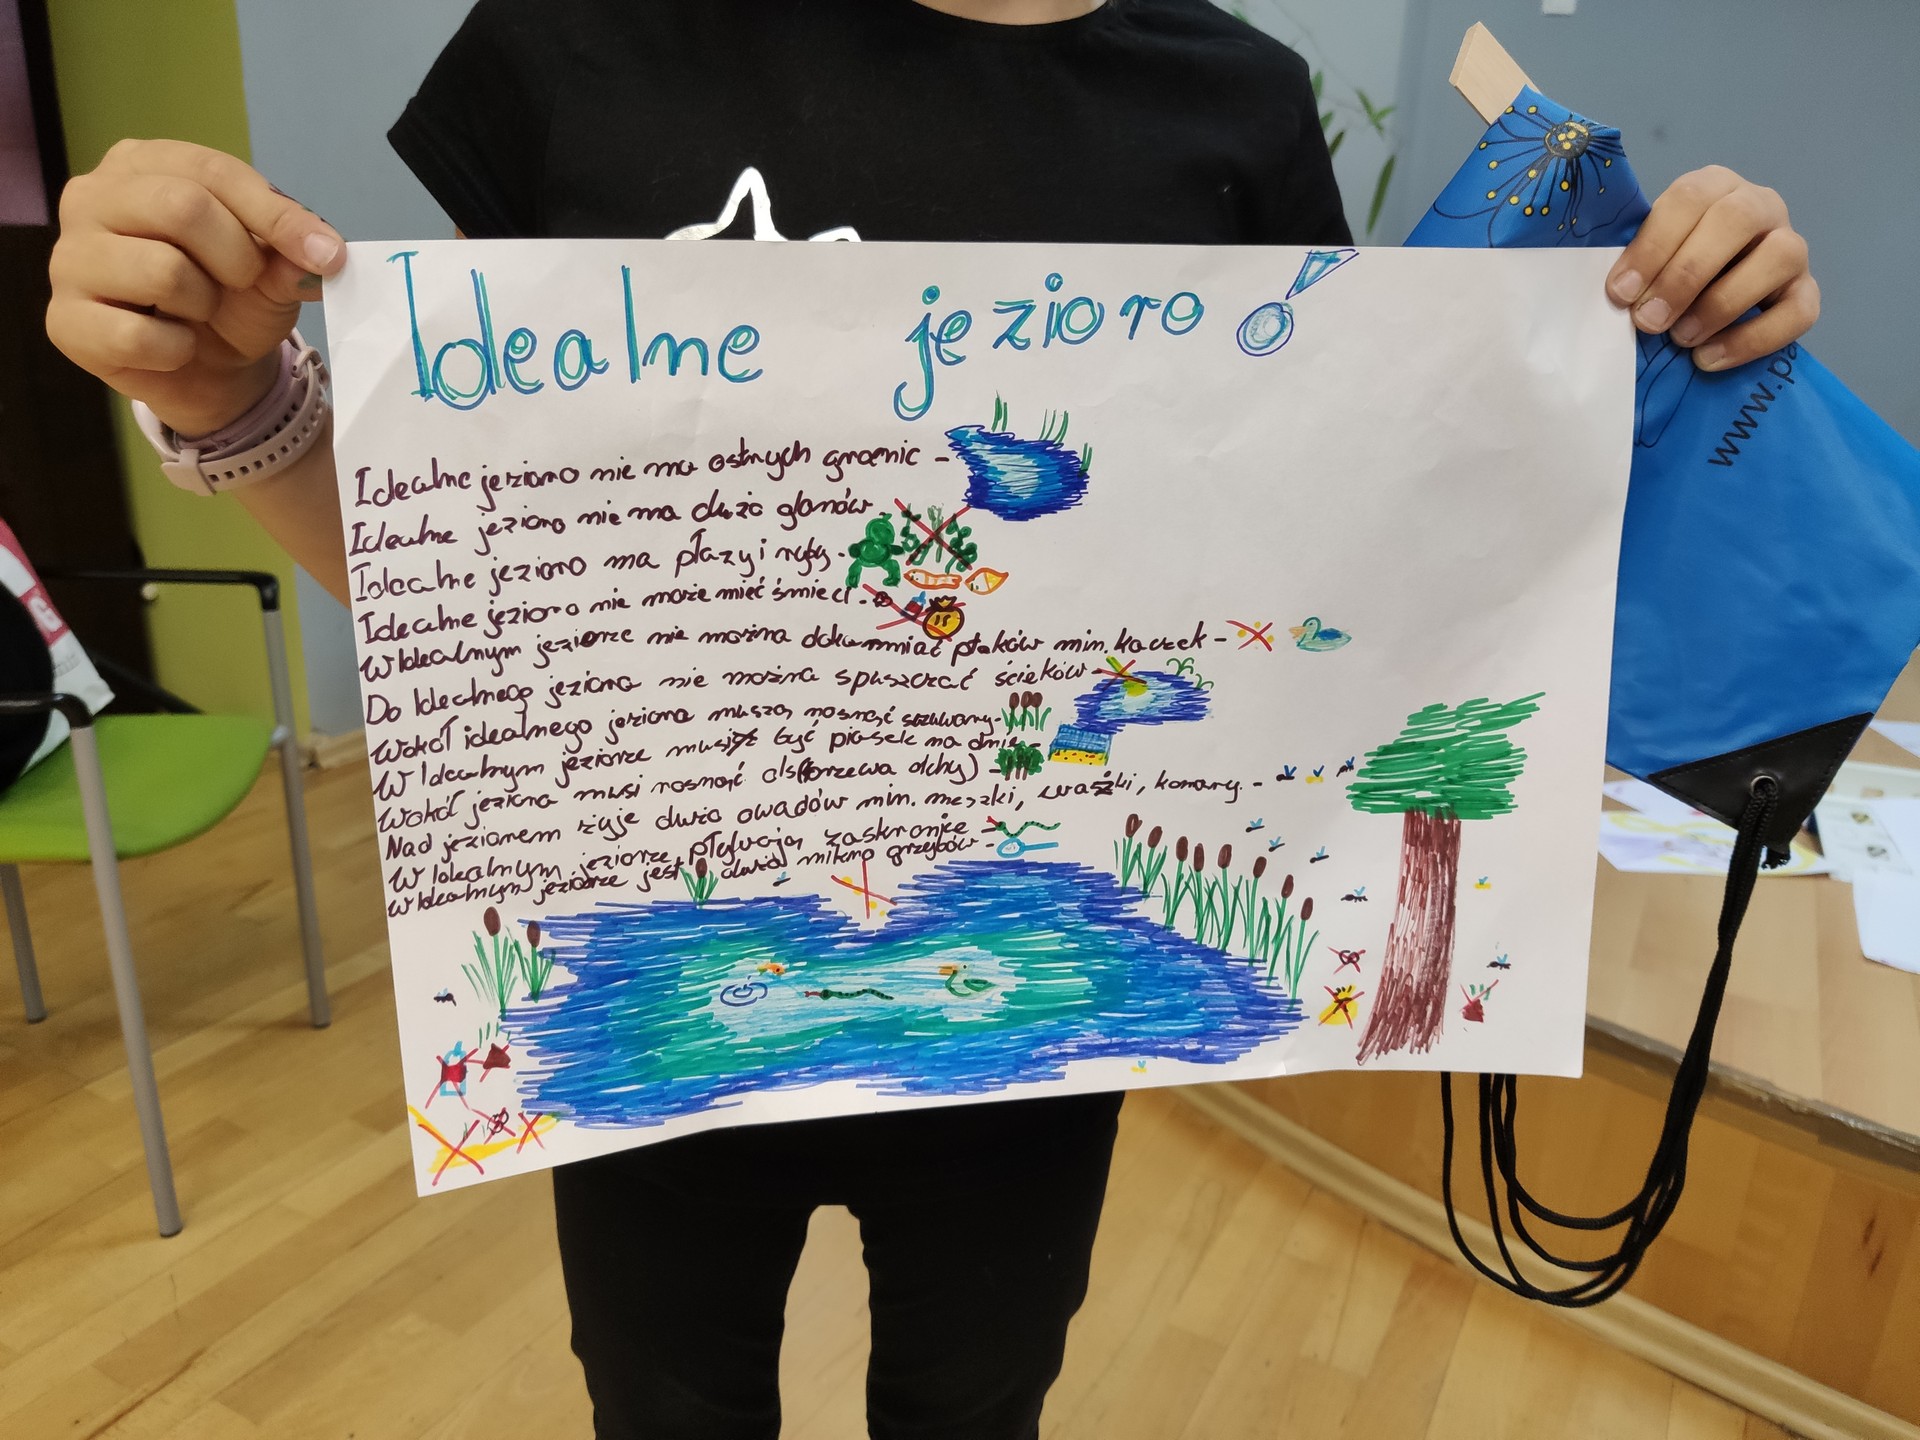 Idealne jezioro!
Idealne jezioro nie ma ostrych granic -
Idealne jezioro nie ma dużo glonów
Idealne jezioro ma płazy i ryby -
Idealne jezioro nie może mieć śmieci -
W Idealnym jeziorze nie można dokarmiać ptaków min. kaczek -
Do Idealnego jeziora nie można spuszczać ścieków -
Wokół idealnego jeziora muszą rosnąć szuwary -
W Idealnym jeziorze musi być piasek na dnie -
Wokół jeziora musi rosnąć ols (drzewa olchy) -
Nad jeziorem żyje dużo owadów min. meszki, ważki, komary. -
W Idealnym jeziorze pływają zaskrońce -
W Idealnym jeziorze jest dużo mikro grzybów -
www.pa